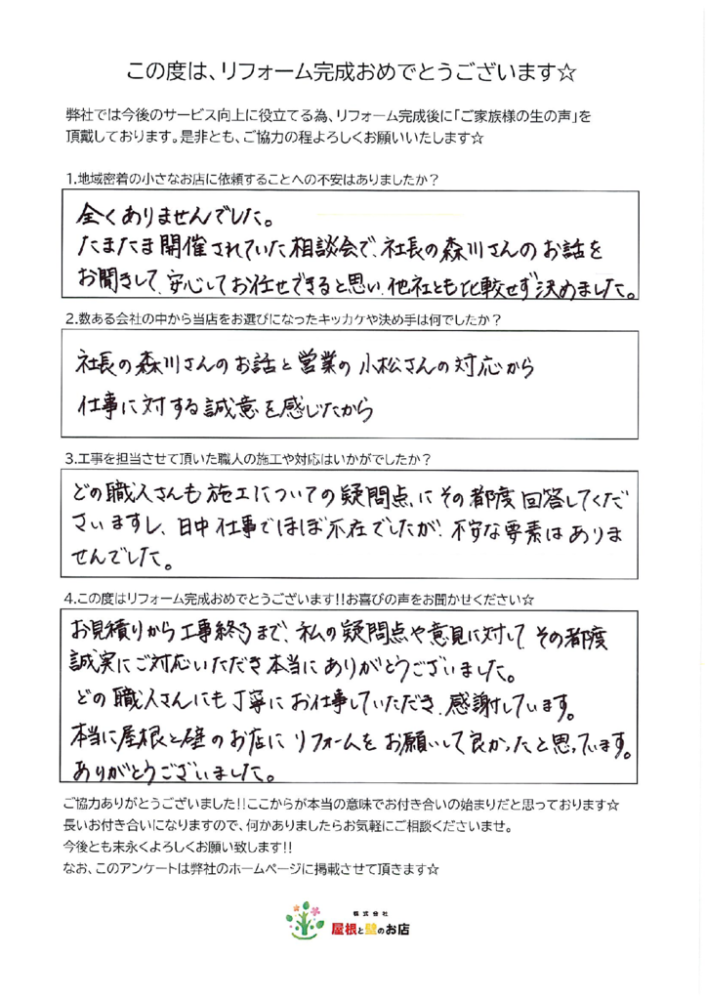 この度は、リフォーム完成おめでとうございます☆
弊社では今後のサービス向上に役立てる為、リフォーム完成後に「ご家族様の生の声」を
頂戴しております。是非とも、ご協力の程よろしくお願いいたします☆
1.地域密着の小さなお店に依頼することへの不安はありましたか？
全くありませんでした。
たまたま開催されていた相談会で、社長の森川さんのお話を
お聞きして、安心してお任せできると思い、他社とも比較せず決めました。
2.数ある会社の中から当店をお選びになったキッカケや決め手は何でしたか？
社長の森川さんのお話と営業の小松さんの対応から
仕事に対する誠意を感じたから
3.工事を担当させて頂いた職人の施工や対応はいかがでしたか？
どの職人さんも施工についての疑問点にその都度回答してくだ
さいますし、日中仕事でほぼ不在でしたが、不安な要素はありま
せんでした。
4.この度はリフォーム完成おめでとうございます!!お喜びの声をお聞かせください☆
お見積りから工事終了まで、私の疑問点や意見に対して、その都度
誠実にご対応いただき本当にありがとうございました。
どの職人さんにも丁寧にお仕事していただき、感謝しています。
本当に屋根と壁のお店にリフォームをお願いして良かったと思っています。
ありがとうございました。
ご協力ありがとうございました!!ここからが本当の意味でお付き合いの始まりだと思っております☆
長いお付き合いになりますので、何かありましたらお気軽にご相談くださいませ。
今後とも末永くよろしくお願い致します!!
なお、このアンケートは弊社のホームページに掲載させて頂きます☆
株式会社
屋根と壁のお店